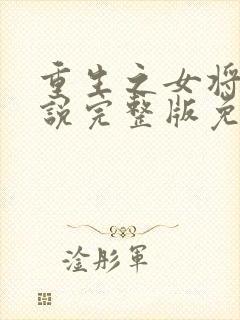 重生之女将
说完整版免
淦彤军